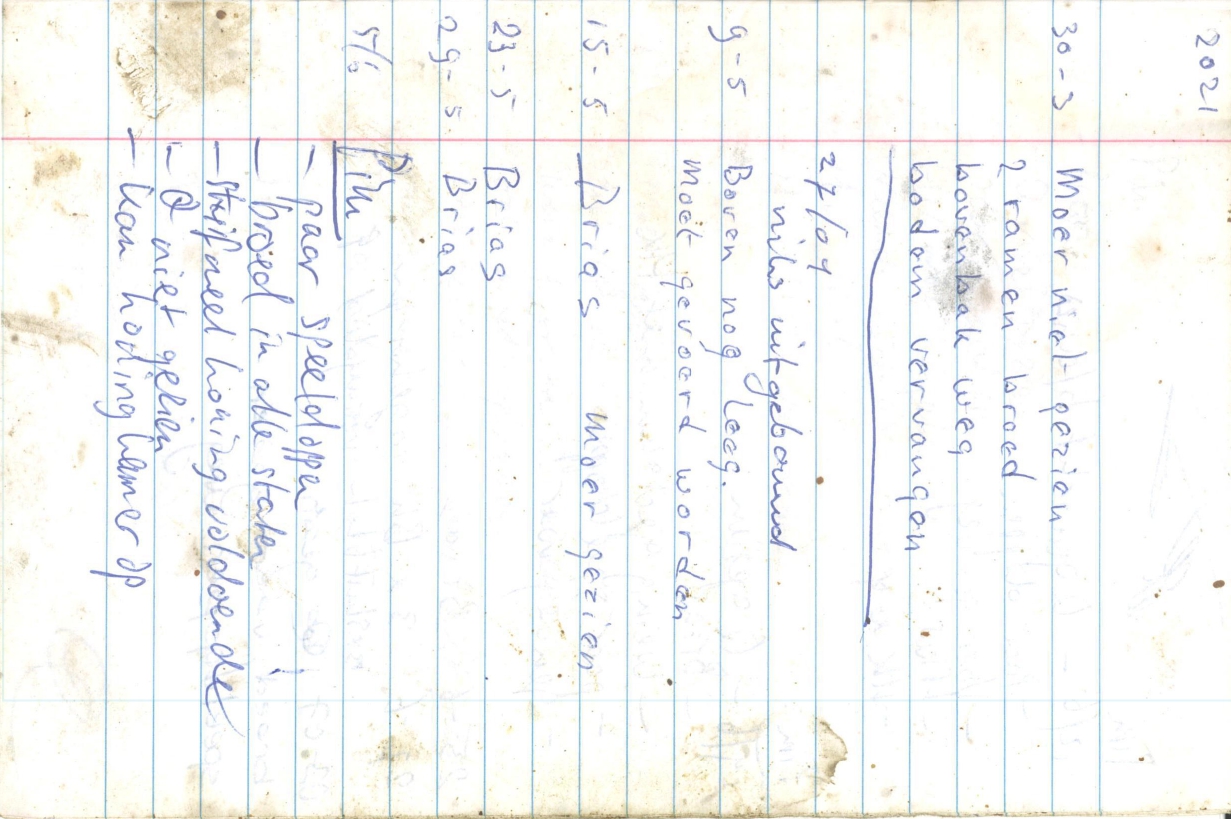 2021
30-3 Moer niet gezien
2 ramen broed
bovenbak weg
bodem vervangen
27/04
niks uitgebouwd
9-5 Boven nog leeg.
Moet gevoerd worden
15-5 Brias moer gezien
23-5 Brias
29-5 Brias
5/6
- paar speeldoppen
- broed in alle staten
- stuifmeel honing voldoende
- Q niet gezien
- kan honingkamer op